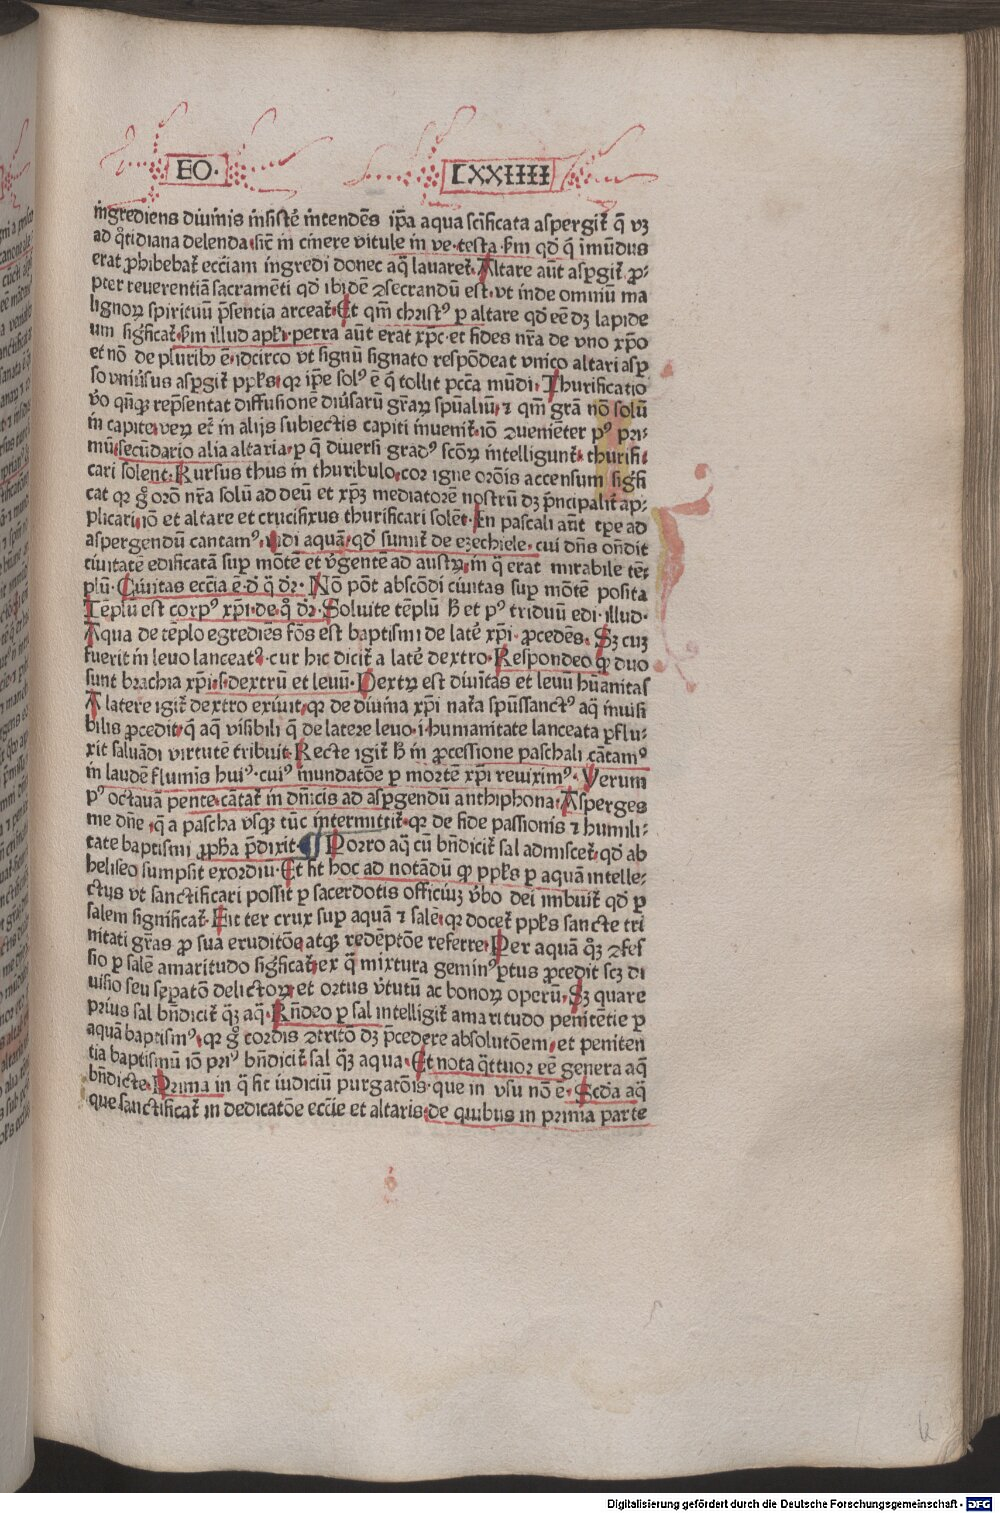 EO·
LXXIIII
ingrediens diuinis insistē intendēs ip̄a aqua scīficata aspergit̄ q̄ vꝫ
ad qͦtidiana delenda·sic̄ in cinere vitule in ve·testa·s̄m qd̄ q̄ īmūdus
erat ꝓhibebat̄ eccīam ingredi donec aq̄ lauaret̄·Altare aūt asꝑgit̄ ꝓ⸗
pter reuerentiā sacramēti qd̄ ibidē ꝯsecrandū est·vt inde omniū ma
lignoꝝ spirituū p̄sentia arceat̄·Et qm̄ christꝰ ꝑ altare qd̄ eē dꝫ lapide
um significat̄·s̄m illud apl̄i·petra aūt erat xp̄c·et fides nr̄a de vno xp̄o
et nō de pluribꝰ ē·idcirco vt signū signato respōdeat vnico altari asꝑ
so vniūsus asꝑgit̄ ppl̄s·qꝛ ip̄e solꝰ ē q̄ tollit pcc̄a mūdi·Thurificatio
v̄o qn̄qꝫ rep̄sentat diffusionē diūsarū gr̄aꝝ spūaliū·⁊ qm̄ grā nō solū
in capite·veꝝ et̄ in alijs subiectis capiti inuenit̄·iō ꝯueniēter pꝰ pri⸗
mū·secūdario alia altaria·ꝑ q̄ diuersi gradꝰ scōꝝ intelligunt̄·thurifi⸗
cari solent·Rursus thus in thuribulo·cor igne orōis accensum siḡfi
cat qꝛ gͦ orō nr̄a solū ad deū et xp̄ꝫ mediatorē nostrū dꝫ p̄ncipalit̄ ap⸗
plicari·iō et altare et crucifixus thurificari solēt·In pascali aūt tꝑe ad
aspergendū cantamꝰ·vidi aquā·qd̄ sumit̄ de ezechiele·cui dn̄s ōndit
ciuitatē edificatā suꝑ mōtē et v̄gentē ad austꝝ·in q̄ erat mirabile tē⸗
plū·Ciuitas ecc̄ia ē·d̄ q̄ dr̄·Nō pōt abscōdi ciuitas suꝑ mōtē posita
Tēplū est corpꝰ xp̄i·de q̄ dr̄·Soluite tēplū h̄ et pꝰ triduū edi·illud·
Aqua de tēplo egrediēs fōs est baptismi de late᷑ xp̄i·ꝓcedēs·Sꝫ cuꝫ
fuerit in leuo lanceatꝰ·cur hic dicit̄ a late᷑ dextro·Respondeo qꝛ duo
sunt brachia xp̄i·s·dextrū et leuū·Dextꝝ est diuītas et leuū hūanitas
A latere igit̄ dextro exiuit·qꝛ de diuina xp̄i nat̄a spūssanctꝰ aq̄ inuisi
bilis ꝓcedit·q̄ aq̄ visibili q̄ de latere leuo·i·humanitate lanceata ꝓflu⸗
xit saluādi virtutē tribuit·Recte igit̄ h̄ in ꝓcessione paschali cātamꝰ
in laudē fluminis huiꝰ·cuiꝰ mundatōe ꝑ mortē xp̄i reuiximꝰ·Verum
pꝰ octauā pente·cātat̄ in dn̄icis ad asꝑgendū anthiphona·Asperges
me dn̄e·q̄ a pascha vsqꝫ tūc intermittit̄·qꝛ de fide passionis ⁊ humili⸗
tate baptismi ꝓpha p̄dixit·¶ Porro aq̄ cū bn̄dicit̄ sal admiscet̄·qd̄ ab
heliseo sumpsit exordiu·Et h̄t hoc ad notādū qꝛ ppl̄s ꝑ aquā intelle⸗
ctus vt sanctificari possit ꝑ sacerdotis officiuꝫ v̄bo dei imbuit̄ qd̄ ꝑ
salem significat̄·Fit ter crux suꝑ aquā ⁊ salē·qꝛ docet̄ ppl̄s sancte tri
nitati gr̄as ꝓ sua eruditōe atqꝫ redēptōe referre·Per aquā q̄ꝫ ꝯfes
sio ꝑ salē amaritudo siḡficat̄·ex q̄ mixtura geminꝰ ꝑtus ꝓcedit scꝫ di
uisio seu seꝑatō delictoꝝ·et ortus v̄tutū ac bonoꝝ operū·Sꝫ quare
prius sal bn̄dicit̄ q̄ꝫ aq̄·Rn̄deo ꝑ sal intelligit̄ amaritudo penitētie ꝑ
aquā baptismꝰ·qꝛ gͦ cordis ꝯtritō dꝫ p̄cedere absolutōem·et peniten
tia baptismū iō priꝰ bn̄dicit̄ sal q̄ꝫ aqua·Et nota q̄ttuor eē genera aq̄
bn̄dicte·Prima in q̄ fit iudiciū purgatōis·que in vsu nō ē·Scd̄a aq̄
que sanctificat̄ in dedicatōe eccīe et altaris·de quibus in prima parte
Digitalisierung gefördert durch die Deutsche Forschungsgemeinschaft - DFG